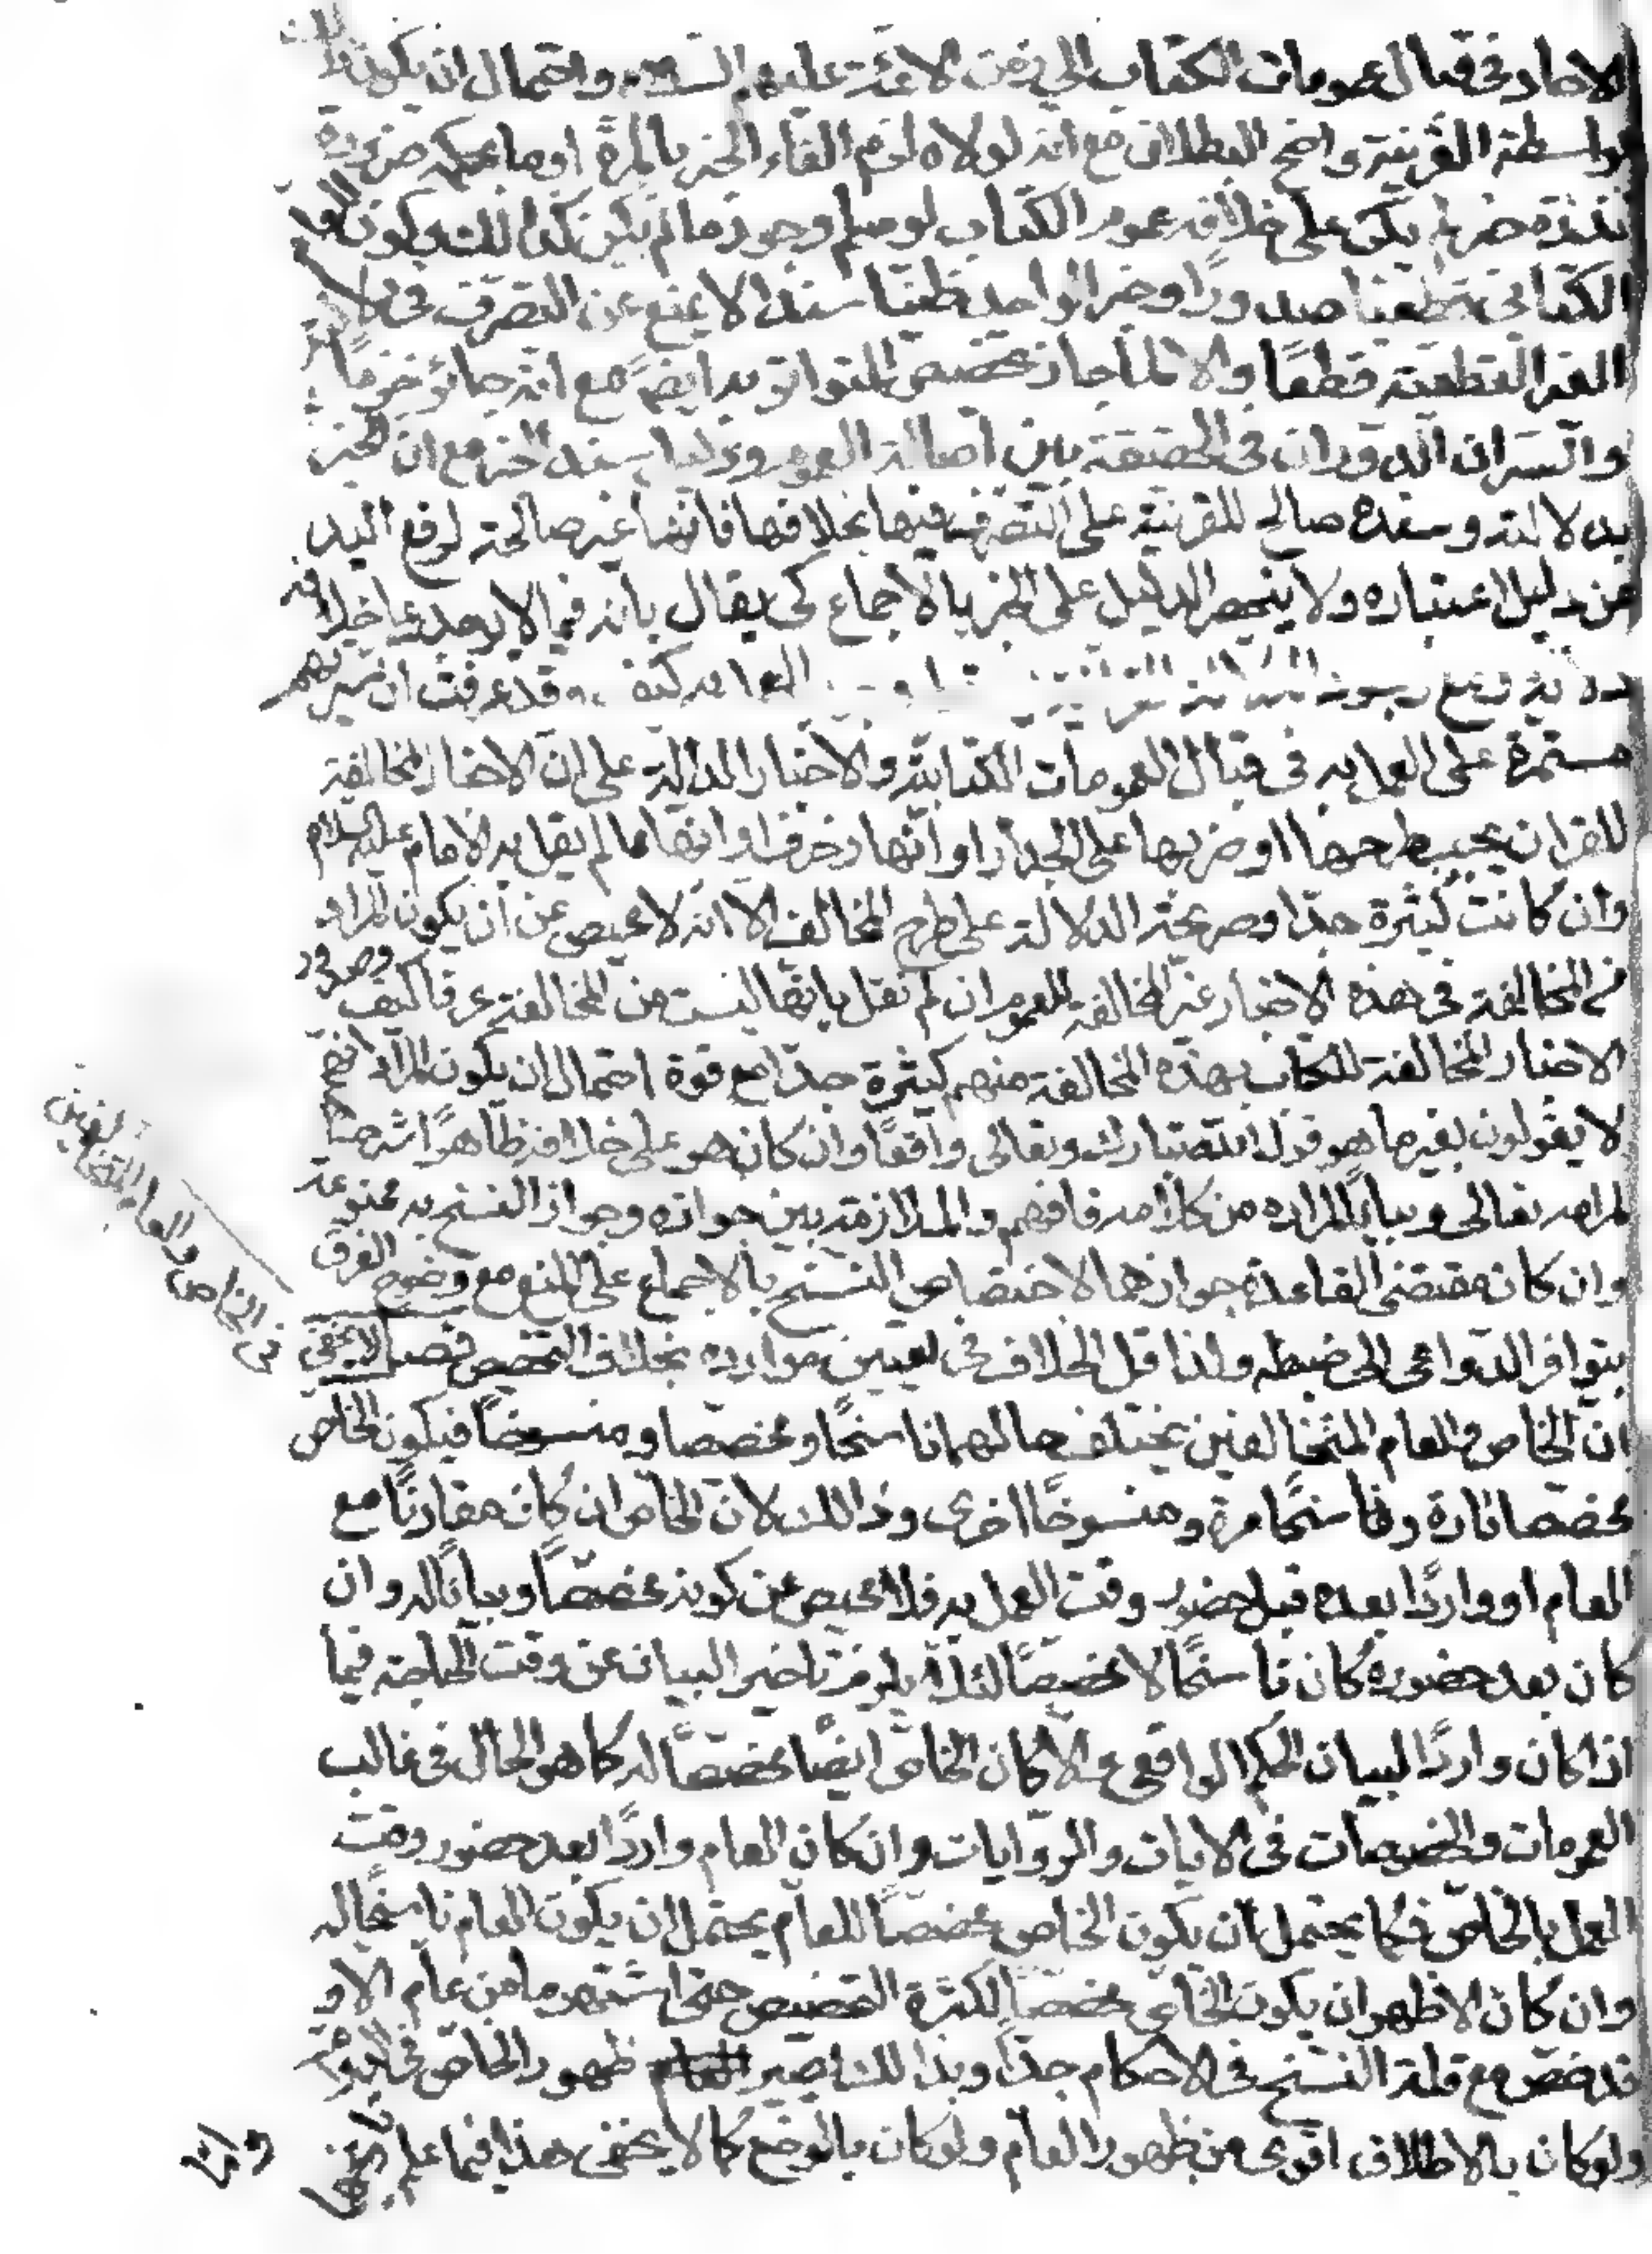 الاحاد في قبال عمومات الكتاب الى زمن الائمة عليهم السلام واحتمال ان يكون ذلك
بواسطة القرينة واضح البطلان مع انه لولاه لزم الغاء الخبر بالمرة او ما بحكمه ضرورة
ندرة خبر لم يكن على خلافه عموم الكتاب لو سلم وجود ما لم يكن كذلك وكون العام
الكتابي قطعيا صدورا وخبر الواحد ظنيا سندا لا يمنع عن التصرف في دلالته
الغير القطعية قطعا والا لما جاز تخصيص المتواتر به ايضا مع انه جائز جزما
والسر ان الدوران في الحقيقة بين اصالة العموم ودليل سند الخبر مع ان الخبر
بدلالته وسنده صالح للقرينة على التصرف فيها بخلافها فانها غير صالحة لرفع اليد
عن دليل اعتباره ولا ينحصر الدليل على الخبر بالاجماع كي يقال بانه فيما لا يوجد على خلافه
دلالة ومع وجود الدلالة القرآنية العمل به كيف وقد عرفت ان سيرتهم
مستمرة على العمل به في قبال العمومات الكتابية والاخبار الدالة على ان الاخبار المخالفة
للقران يجب طرحها او ضربها على الجدار او انها زخرف او انها مما لم يقل به الامام عليه السلام
وان كانت كثيرة جدا وصريحة الدلالة على طرح المخالف الا انه لا محيص عن ان يكون المراد
من المخالفة في هذه الاخبار غير المخالفة للعموم ان لم نقل بانها ليست من المخالفة عرفا كيف وصدور
الاخبار المخالفة للكتاب بهذه المخالفة منهم كثيرة جدا مع قوة احتمال ان يكون المراد انهم
لا يقولون بغير ما هو قول الله تبارك وتعالى واقعا وان كان هو على خلافه ظاهرا شرحا
لمرامه تعالى وبيانا لمراده من كلامه فافهم والملازمة بين جوازه وجواز النسخ به ممنوعة
وان كان مقتضى القاعدة جوازهما لاختصاص النسخ بالاجماع على المنع مع وضوح الفرق
بتوافر الدواعي الى ضبطه ولذا قل الخلاف في تعيين موارده بخلاف التخصيص فصل لا يخفى
في الخاص والعام المتخالفين
ان الخاص والعام المتخالفين يختلف حالهما ناسخا ومخصصا ومنسوخا فيكون الخاص
مخصصا تارة وناسخا مرة ومنسوخا اخرى وذالك لان الخاص ان كان مقارنا مع
العام او واردا بعده قبل حضور وقت العمل به فلا محيص عن كونه مخصصا وبيانا له وان
كان بعد حضوره كان ناسخا لا مخصصا لئلا يلزم تاخير البيان عن وقت الحاجة فيما
اذا كان واردا لبيان الحكم الواقعي والا كان الخاص ايضا مخصصا له كما هو الحال في غالب
العمومات والخصوصات في الايات والروايات وان كان العام واردا بعد حضور وقت
العمل بالخاص فكما يحتمل ان يكون الخاص مخصصا للعام يحتمل ان يكون العام ناسخا له
وان كان الاظهر ان يكون الخاص مخصصا لكثرة التخصيص حتى اشتهر ما من عام الا و
قد خص مع قلة النسخ في الاحكام جدا وبذالك يصير ظهور الخاص في الدوام
ولو كان بالاطلاق اقوى من ظهور العام ولو كان بالوضع كما لا يخفى هذا فيما علم تاريخهما
واما